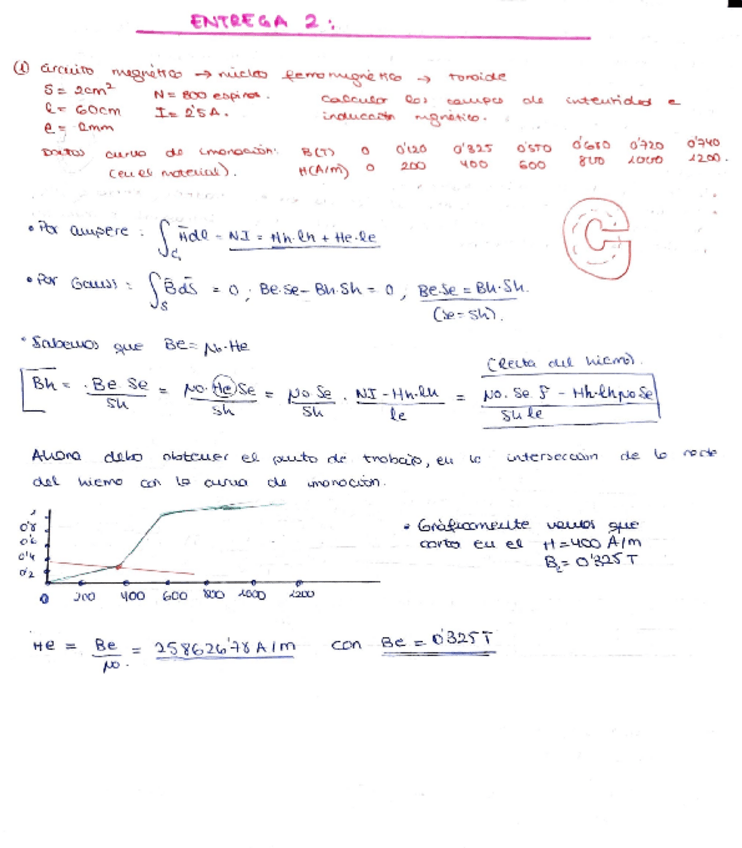 ENTREGA 2:
① Circuito magnético → núcleo ferromagnético → toroide
S = 2cm² N = 800 espiras. Calcular los campos de intensidad e
l = 60cm I = 2'5A. inducción magnético.
e = 2mm
Datos curva de imanación: B(T) 0 0'120 0'325 0'570 0'680 0'720 0'740
(en el material). H(A/m) 0 200 400 600 800 1000 1200.
• Por ampere: ∫c₁ H̄dl = NI = Hh·lh + He·le
• Por Gauss: ∫s B̄ds̄ = 0; Be·Se - Bh·Sh = 0, Be·Se = Bh·Sh.
(Se = Sh).
• Sabemos que Be = μ₀·He
(Recta del hierro).
Bh = Be·Se/Sh = μ₀·He Se/Sh = μ₀ Se/Sh · NI - Hh·lh/le = μ₀·Se·F - Hh·lh μ₀ Se/Sh le
Ahora debo obtener el punto de trabajo, en la intersección de la recta
del hierro con la curva de imanación.
0'8
0'6
0'4
0'2
0 200 400 600 800 1000 1200
• Gráficamente vemos que
corta en el H = 400 A/m
B = 0'325 T
He = Be/μ₀ = 258626'78 A/m con Be = 0'325 T